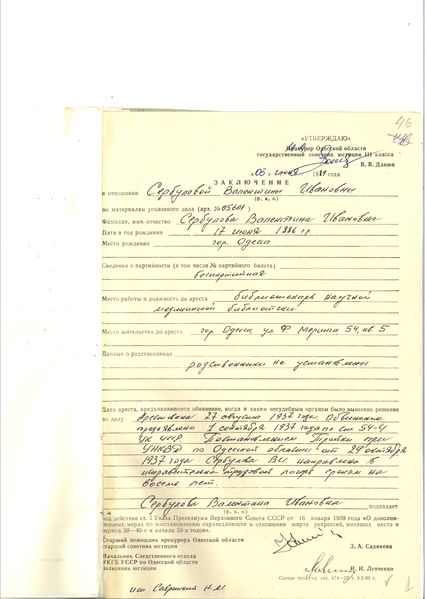 46
«УТВЕРЖДАЮ»
Прокурор Одесской области
государственный советник юстиции III класса
В. В. Дацюк
«06» июня 1989 г.
ЗАКЛЮЧЕНИЕ
в отношении Сербуловой Валентины Ивановны
(ф. и. о)
по материалам уголовного дела (арх. № 05601)
Фамилия, имя, отчество Сербулова Валентина Ивановна
Дата и год рождения 17 июня 1886 г.
Место рождения гор. Одесса
Сведения о партийности (в том числе № партийного билета)
беспартийная
Место работы и должность до ареста библиотекарь научной
медицинской библиотеки
Место жительства до ареста гор. Одесса, ул. Ф. Меринга 54, кв. 5
Данные о родственниках
родственники не установлены
Дата ареста, предъявлявшиеся обвинение, когда и каким несудебным органом было вынесено решение
по делу Арестована 27 августа 1937 года. Обвинение
предъявлено 1 сентября 1937 года по ст. 54-4
УК УССР. Постановлением Тройки при
УНКВД по Одесской области от 29 октября
1937 года Сербулова В.И. направлена в
исправительно трудовой лагерь сроком на
восемь лет.
Сербулова Валентина Ивановна подпадает
(ф. и. о)
под действие ст. 1 Указа Президиума Верховного Совета СССР от 16 января 1989 года «О дополни-
тельных мерах по восстановлению справедливости в отношении жертв репрессий, имевших место в
период 30—40-х и начала 50-х годов».
Старший помощник прокурора Одесской области
старший советник юстиции
З. А. Садикова
Начальник Следственного отдела
УКГБ УССР по Одесской области
полковник юстиции
Н. Н. Левченко
исп Савришкин Н.М